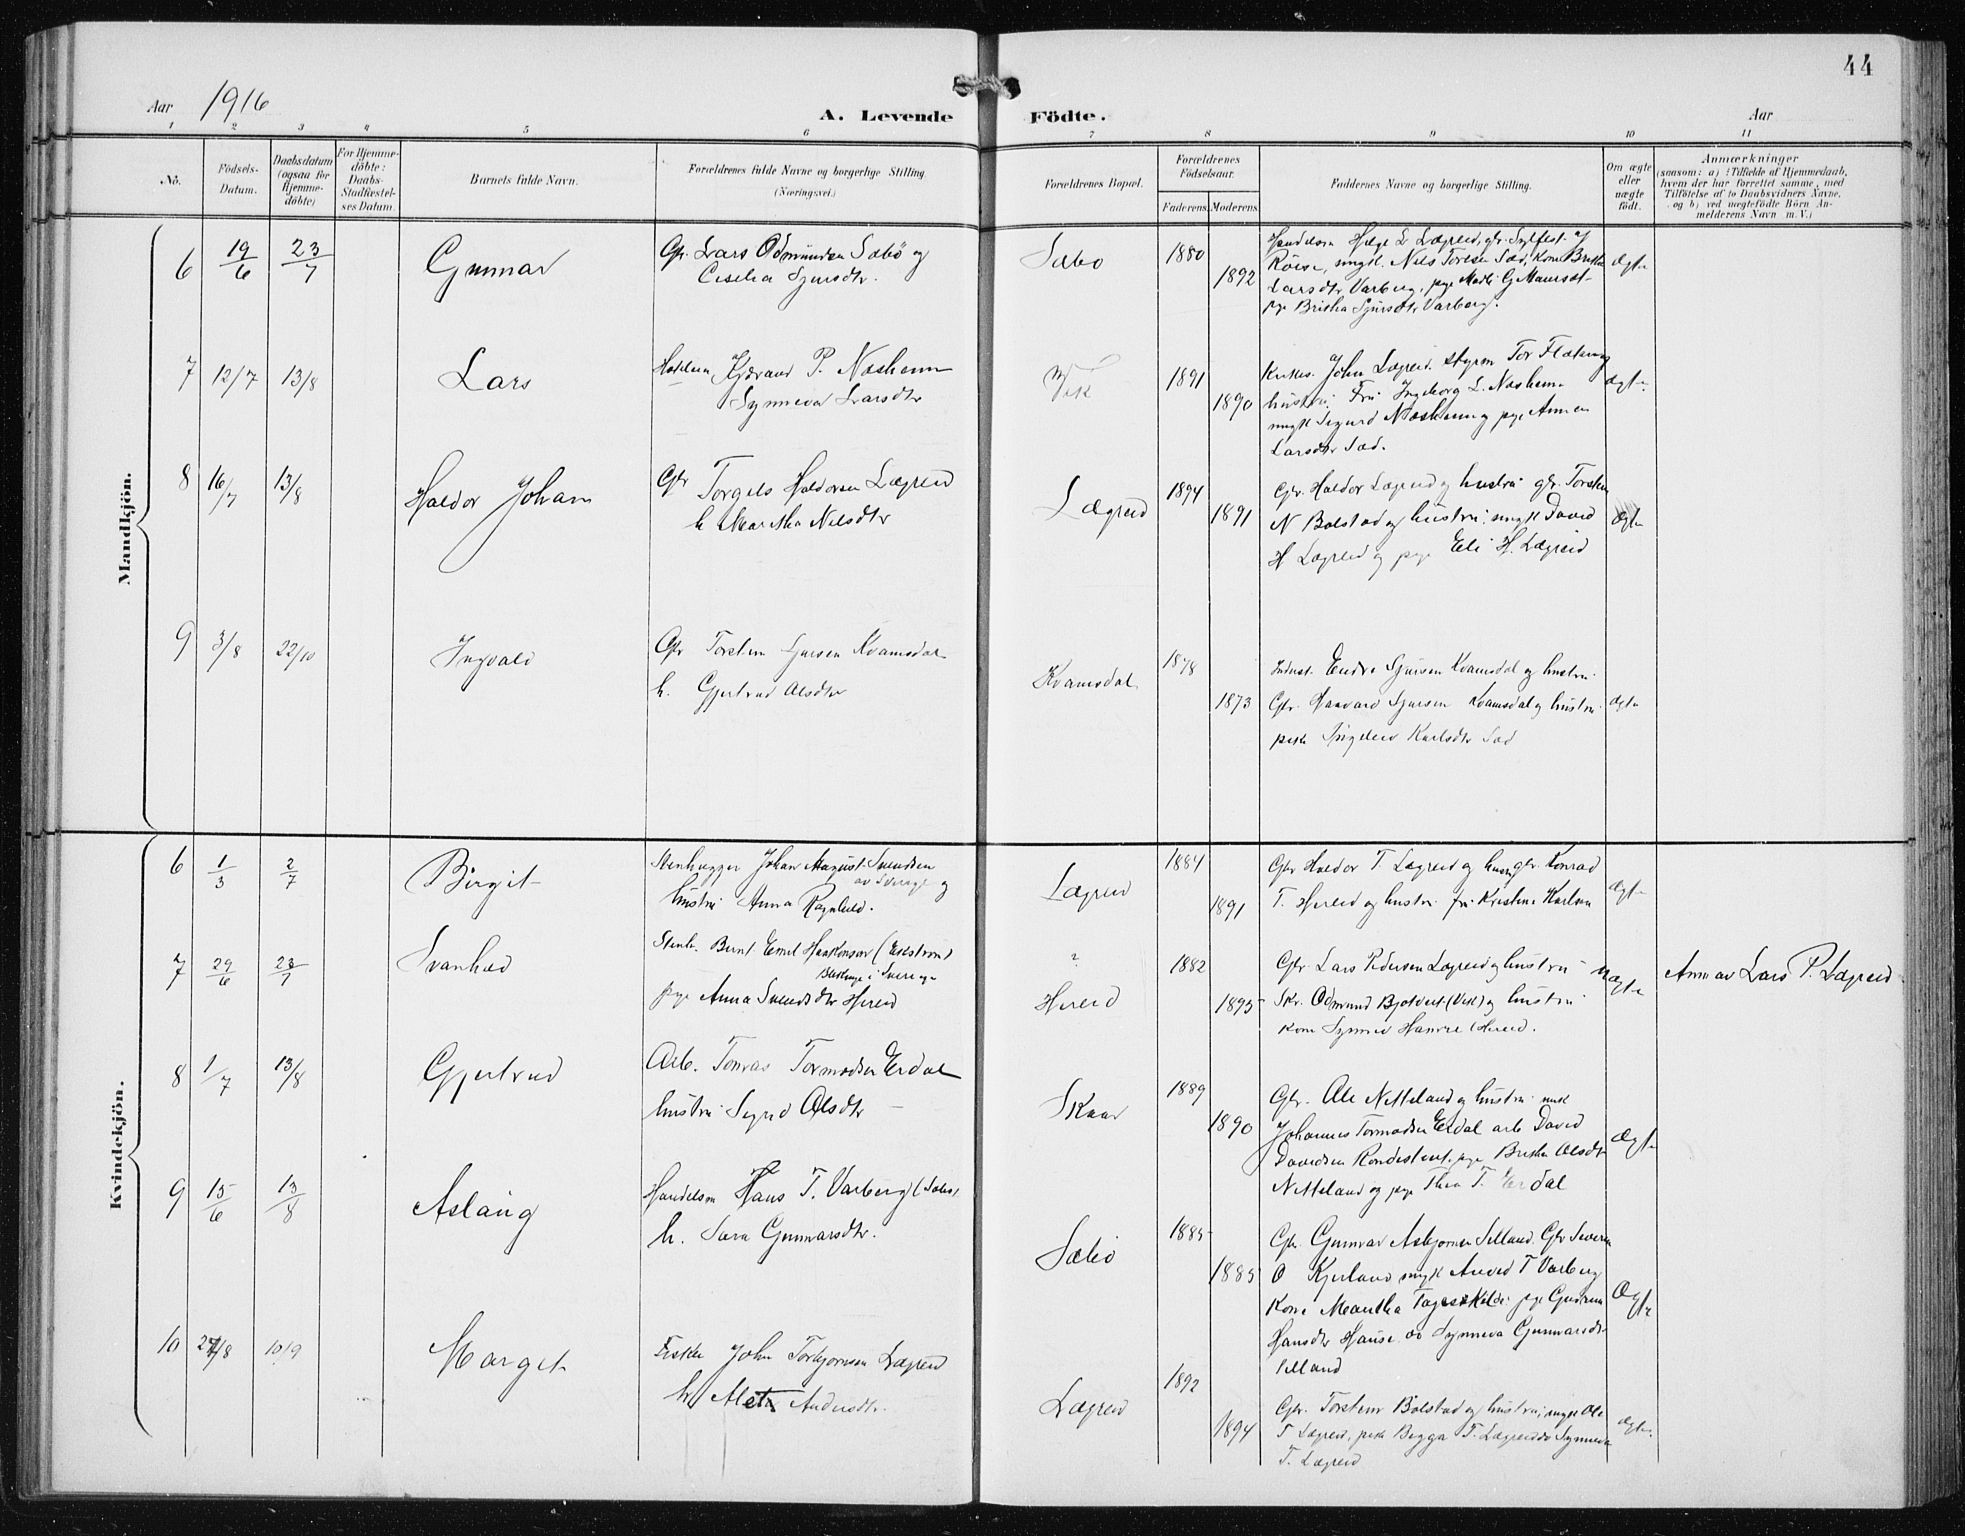 44
Aar 1916
A. Levende Födte.
Aar
1 2 3 4 5 6 7 8 9 10 11
No.
Födsels-Datum.
Daabsdatum (ogsaa for Hjemme-döbte)
For Hjemme-döbte: Daabs-Stadfæstel-ses Datum.
Barnets fulde Navn.
Forældrenes fulde Navne og borgerlige Stilling. (Næringsvei.)
Forældrenes Bopæl.
Forældrenes Födselsaar.
Faderens Moderens
Faddernes Navne og borgerlige Stilling.
Om ægte eller uægte födt.
Anmærkninger
(saasom: a) i Tilfælde af Hjemmedaab,
hvem der har forrettet samme, med
Tilföielse af to Daabsvidners Navne,
og b) ved uægtefödte Börn An-
melderens Navn m. V.)
Mandkjön.
6 19/6 23/7 Gunnar
Gbr. Lars Odmundsen Sæbö og
Cecelia Sjursdtr.
Sæbö 1880 1892
Handelsm Helge L Lægreid, gbr. Sylfest
Röise, ungk. Nils Toresen Sæd, Kone Britha
Larsdtr Varberg, pige G Maursæt
pige Britha Sjursdtr Varberg.
ægte
7 12/7 13/8 Lars
P. Næsheim
Synneva Larsdtr
Vik 1891 1890
Kirkes. John Lægreid. Tor
hustru. Fru Ingeborg L. Næsheim
ungk Sigurd Næsheim og pige Anna
Larsdtr Sæd.
ægte
8 16/7 13/8 Haldor Johan
Gbr Torgils Haldorsen Lægreid
h Martha Nilsdtr
Lægreid 1894 1891
Gbr. Haldor Lægreid og hustru gbr. Torstein
N Bolstad og hustru, ungk David
H Lægreid og pige Eli H. Lægreid
ægte
9 3/8 22/10 Ingvald
Gbr Torstein Sjursen Kvamsdal
h. Gjertrud Olsdtr
Kvamsdal 1878 1873
Indust. Endre Sjursen Kvamsdal og hustru.
Gbr. Haavard Sjursen Kvamsdal og hustru
pike Ingeleiv Karlsdtr Sæd
ægte
Kvindekjön.
6 1/3 2/7 Birgit
Stenhugger Johan August Svendsen
av Sverige og
hustru Anna Ragnhild.
Lægreid 1884 1891
Gbr Haldor T. Lægreid og gbr. Konrad
T. Hereid og hustru fru Kristine Karlsen
ægte
7 29/6 23/7 Svanhild
Stenh. Bernt Emil Haakonson (Ekström)
Blekinge i Sverige
pige Anna Svendsdtr Hereid
?
Hereid 1882 1895
Gbr. Lars Pedersen Lægreid og hustru
Skr. Odmund Bjotveit (Vik) og hustru
Kone Synnev Hamre Hereid.
uægte
Anm av Lars P. Lægreid
8 1/7 13/8 Gjertrud
Arb. Tomas Tormodsen Erdal
hustru Sigrid Olsdtr
Skaar 1889 1890
Gbr. Ole Netteland og hustru unk
Johannes Tormodsen Erdal arb David
Davidsen Rondestveit, pige Britha Olsdtr
Netteland og pige Thea T. Erdal
ægte
9 15/6 13/8 Aslaug
Handelsm Hans T. Varberg (Sæbö)
h. Sara Gunnarsdtr.
Sæbö 1885 1885
Gbr. Gunnar Asbjornsen Selland. Gbr Severin
O Kjerland ungk Arved T Varberg
Kone Martha pige Gudrun
Hansdtr Hause og Synneva Gunnarsdtr
Selland
ægte
10 24/8 10/9 Margit
Fisker John Torbjornsen Lægreid
h Andersdtr.
Lægreid 1892 1894
Gbr. Torstein Bolstad og hustru, ungk Ole
T Lægreid, pike Begga T. Lægreid Synneva
T. Lægreid
ægte.